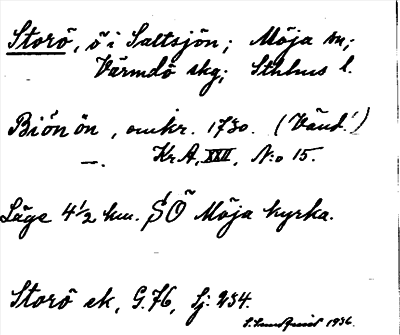 Storö, ö i Saltsjön; Möja sn;
Värmdö skg; Sthlms l.
Biön ön, omkr. 1730. (Vänd!)
—. KrA, XXII, N:o 15.
Läge 4½ km. SÖ Möja kyrka.
Storö ek, G. 76, Sj: 234.
S. Sundquist 1936.